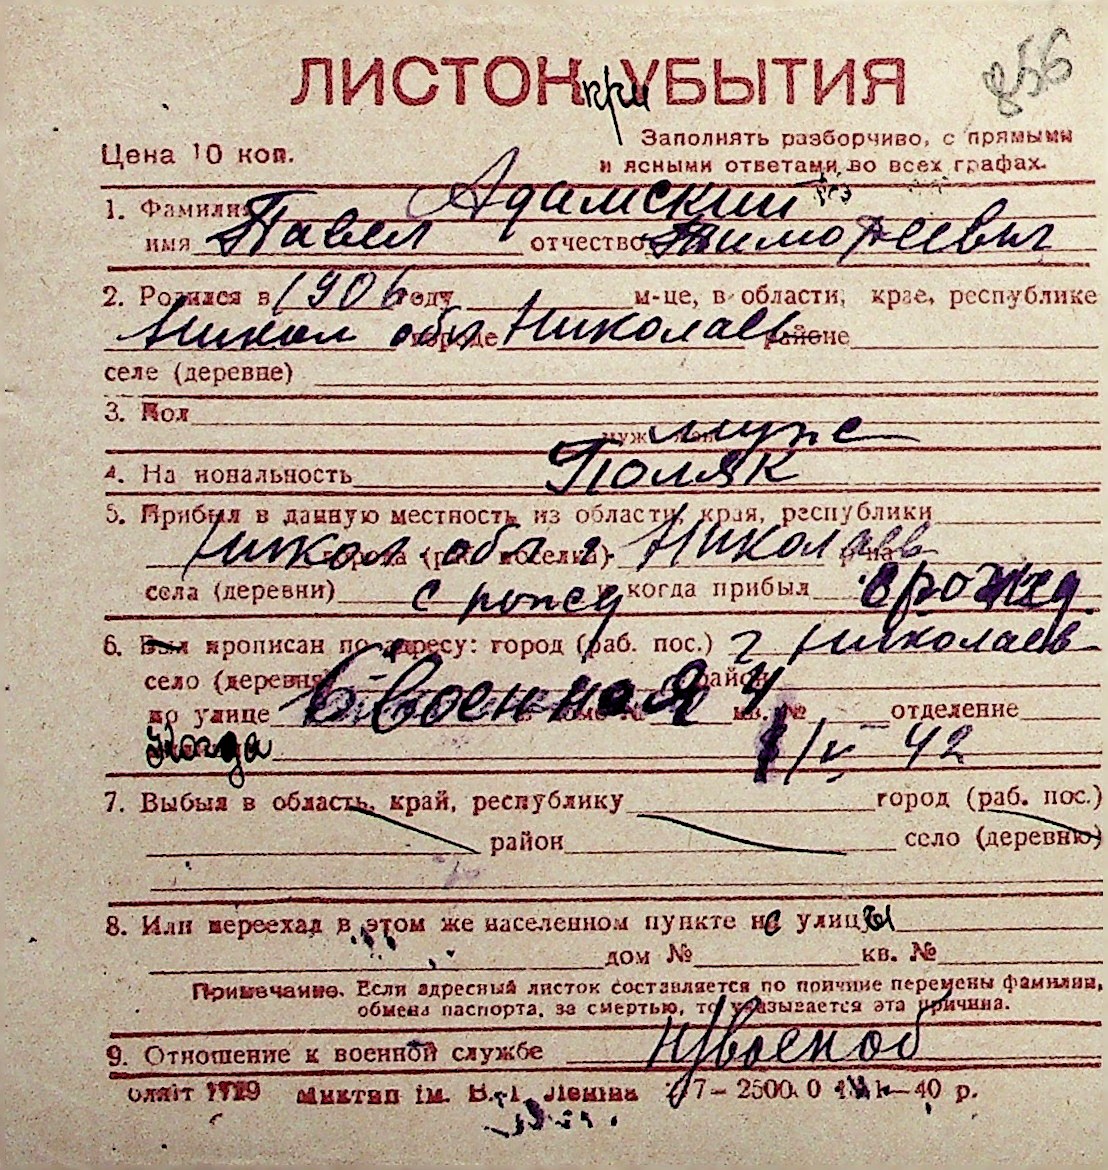 856
ЛИСТОК при УБЫТИЯ
Цена 10 коп.
Заполнять разборчиво, с прямыми
и ясными ответами во всех графах.
1. Фамилия Адамский
имя Павел отчество Тимофеевич
2. Родился в 1906 году м-це, в области, крае, республике
Никол обл городе Николаев районе
селе (деревне)
3. Пол
муж жен муже
4. На иональность Поляк
5. Прибыл в данную местность из области, края, республики
Никол обл города (раб. поселка) г Николаев
села (деревни) с рожд и когда прибыл с рожд.
6. Был прописан по адресу: город (раб. пос.) г Николаев
село (деревня) район
по улице 6 военная 4 кв. № отделение
Когда 1/V 42
7. Выбыл в область, край, республику город (раб. пос.)
район село (деревню)
8. Или переехал в этом же населенном пункте с улицы
дом № кв. №
Примечание. Если адресный листок составляется по причине перемены фамилии,
обмена паспорта, за смертью, то указывается эта причина.
9. Отношение к военной службе н/военоб
1729 ім. В. І. Леніна 7—2500 0 40 р.